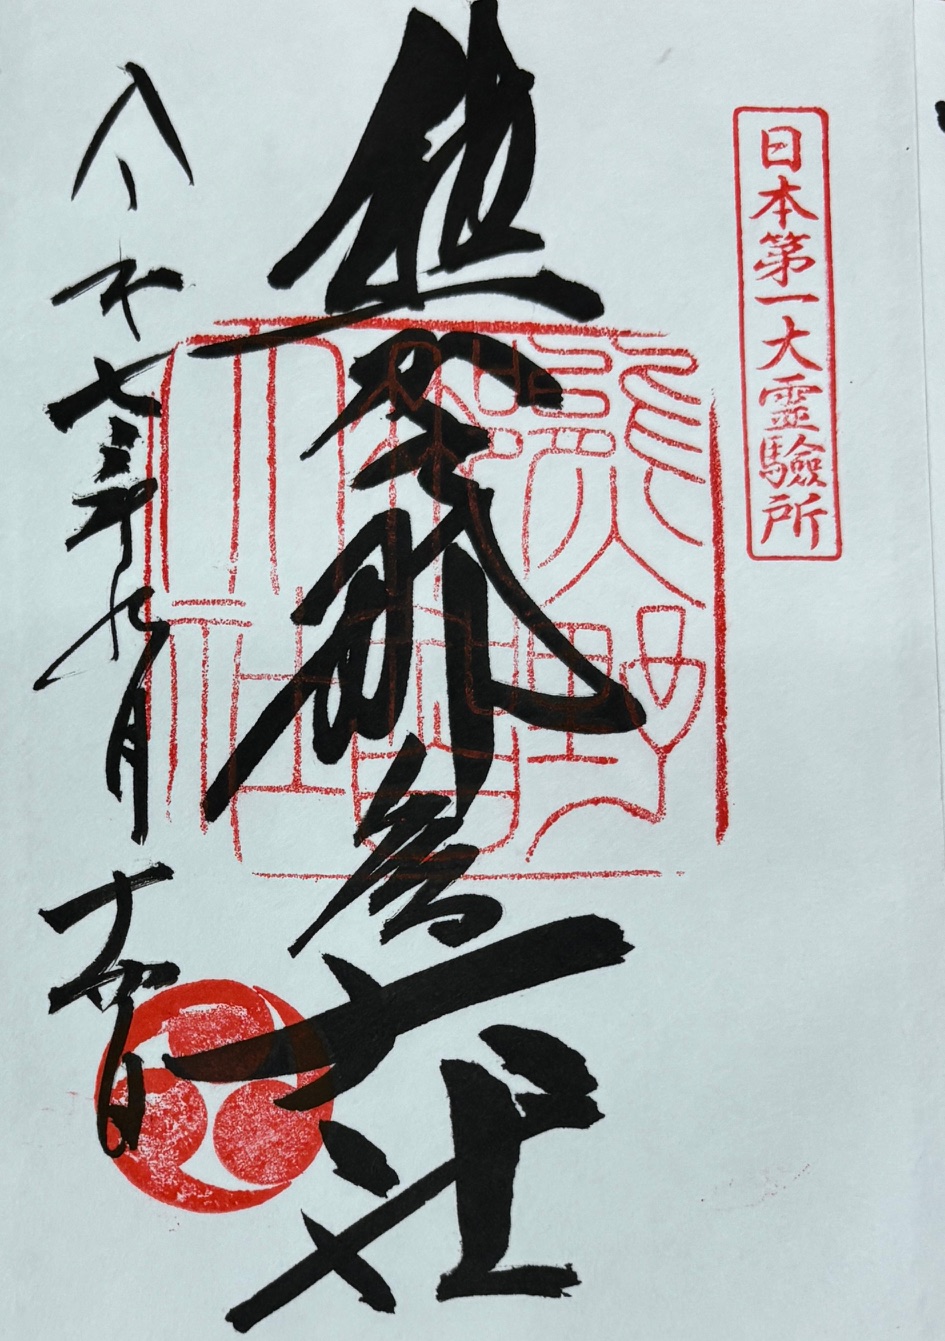 日本第一大霊驗所
熊野那智大社
令和七年九月日
熊野
那智
大社